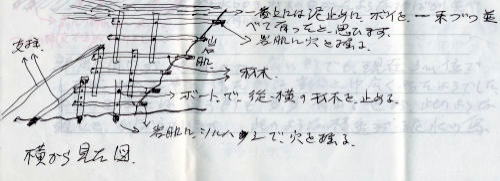 一番上には泥止めに、ボイを、一本づつ並
べて有ったと、思ひます。
岩肌に穴を掘る。
支柱
山の
肌
杉木
ボートで、縦、横の杉木を止める。
岩肌に、ツルハシで、穴を掘る
横から見た図.